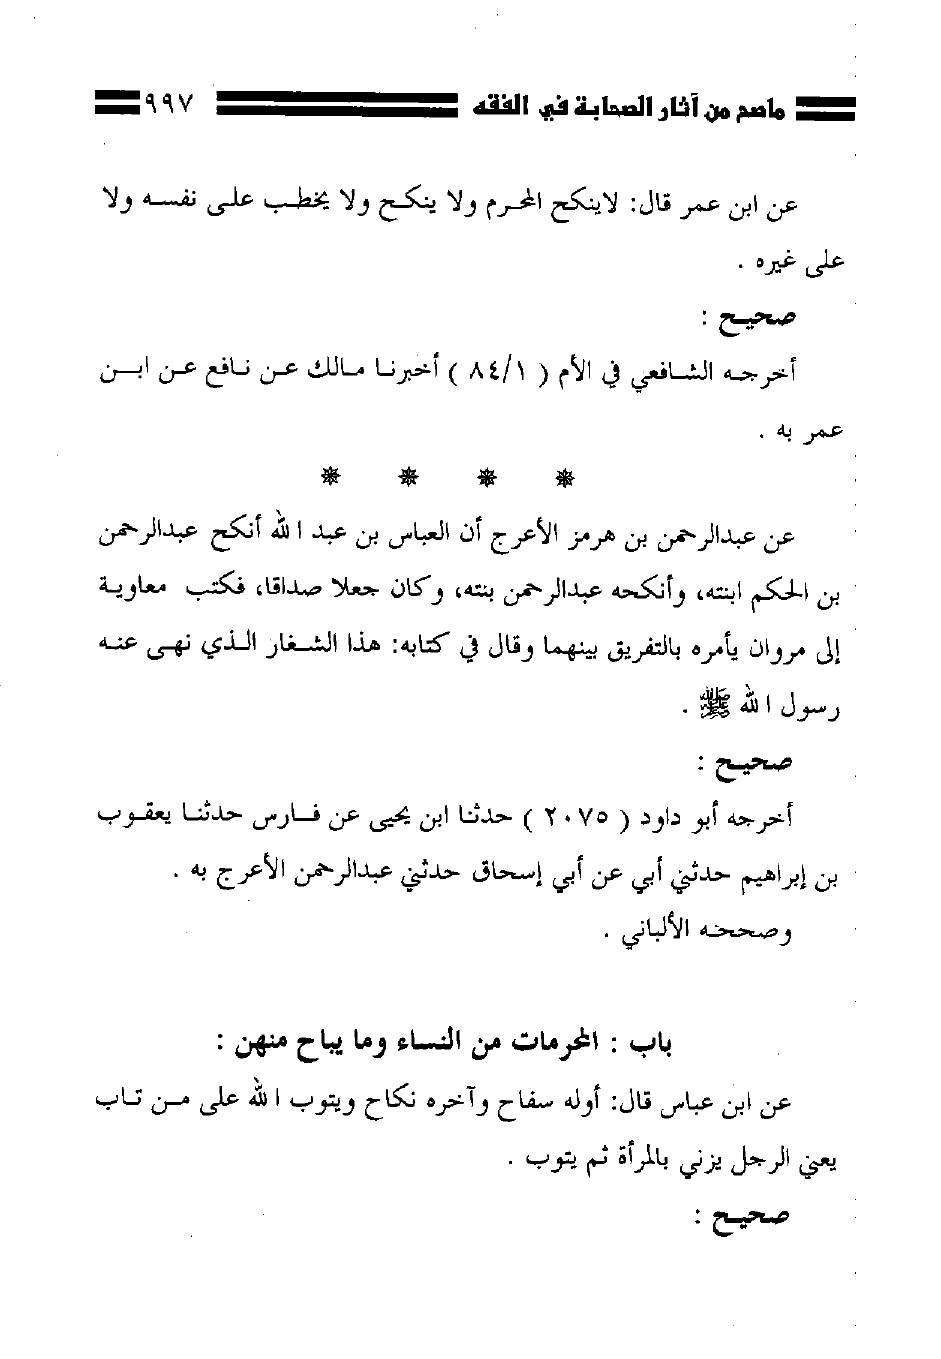 ماصح من آثار الصحابة في الفقه ٩٩٧
عن ابن عمر قال: لاينكح المحرم ولا ينكح ولا يخطب على نفسه ولا
على غيره .
صحيح :
أخرجه الشافعي في الأم ( ٨٤/١ ) أخبرنا مالك عن نافع عن ابن
عمر به .
* * * *
عن عبدالرحمن بن هرمز الأعرج أن العباس بن عبد الله أنكح عبدالرحمن
بن الحكم ابنته، وأنكحه عبدالرحمن بنته، وكان جعلا صداقا، فكتب معاوية
إلى مروان يأمره بالتفريق بينهما وقال في كتابه: هذا الشغار الذي نهى عنه
رسول الله ﷺ .
صحيح :
أخرجه أبو داود ( ٢٠٧٥ ) حدثنا ابن يحيى عن فارس حدثنا يعقوب
بن إبراهيم حدثني أبي عن أبي إسحاق حدثني عبدالرحمن الأعرج به .
وصححه الألباني .
باب : المحرمات من النساء وما يباح منهن :
عن ابن عباس قال: أوله سفاح وآخره نكاح ويتوب الله على من تاب
يعني الرجل يزني بالمرأة ثم يتوب .
صحيح :